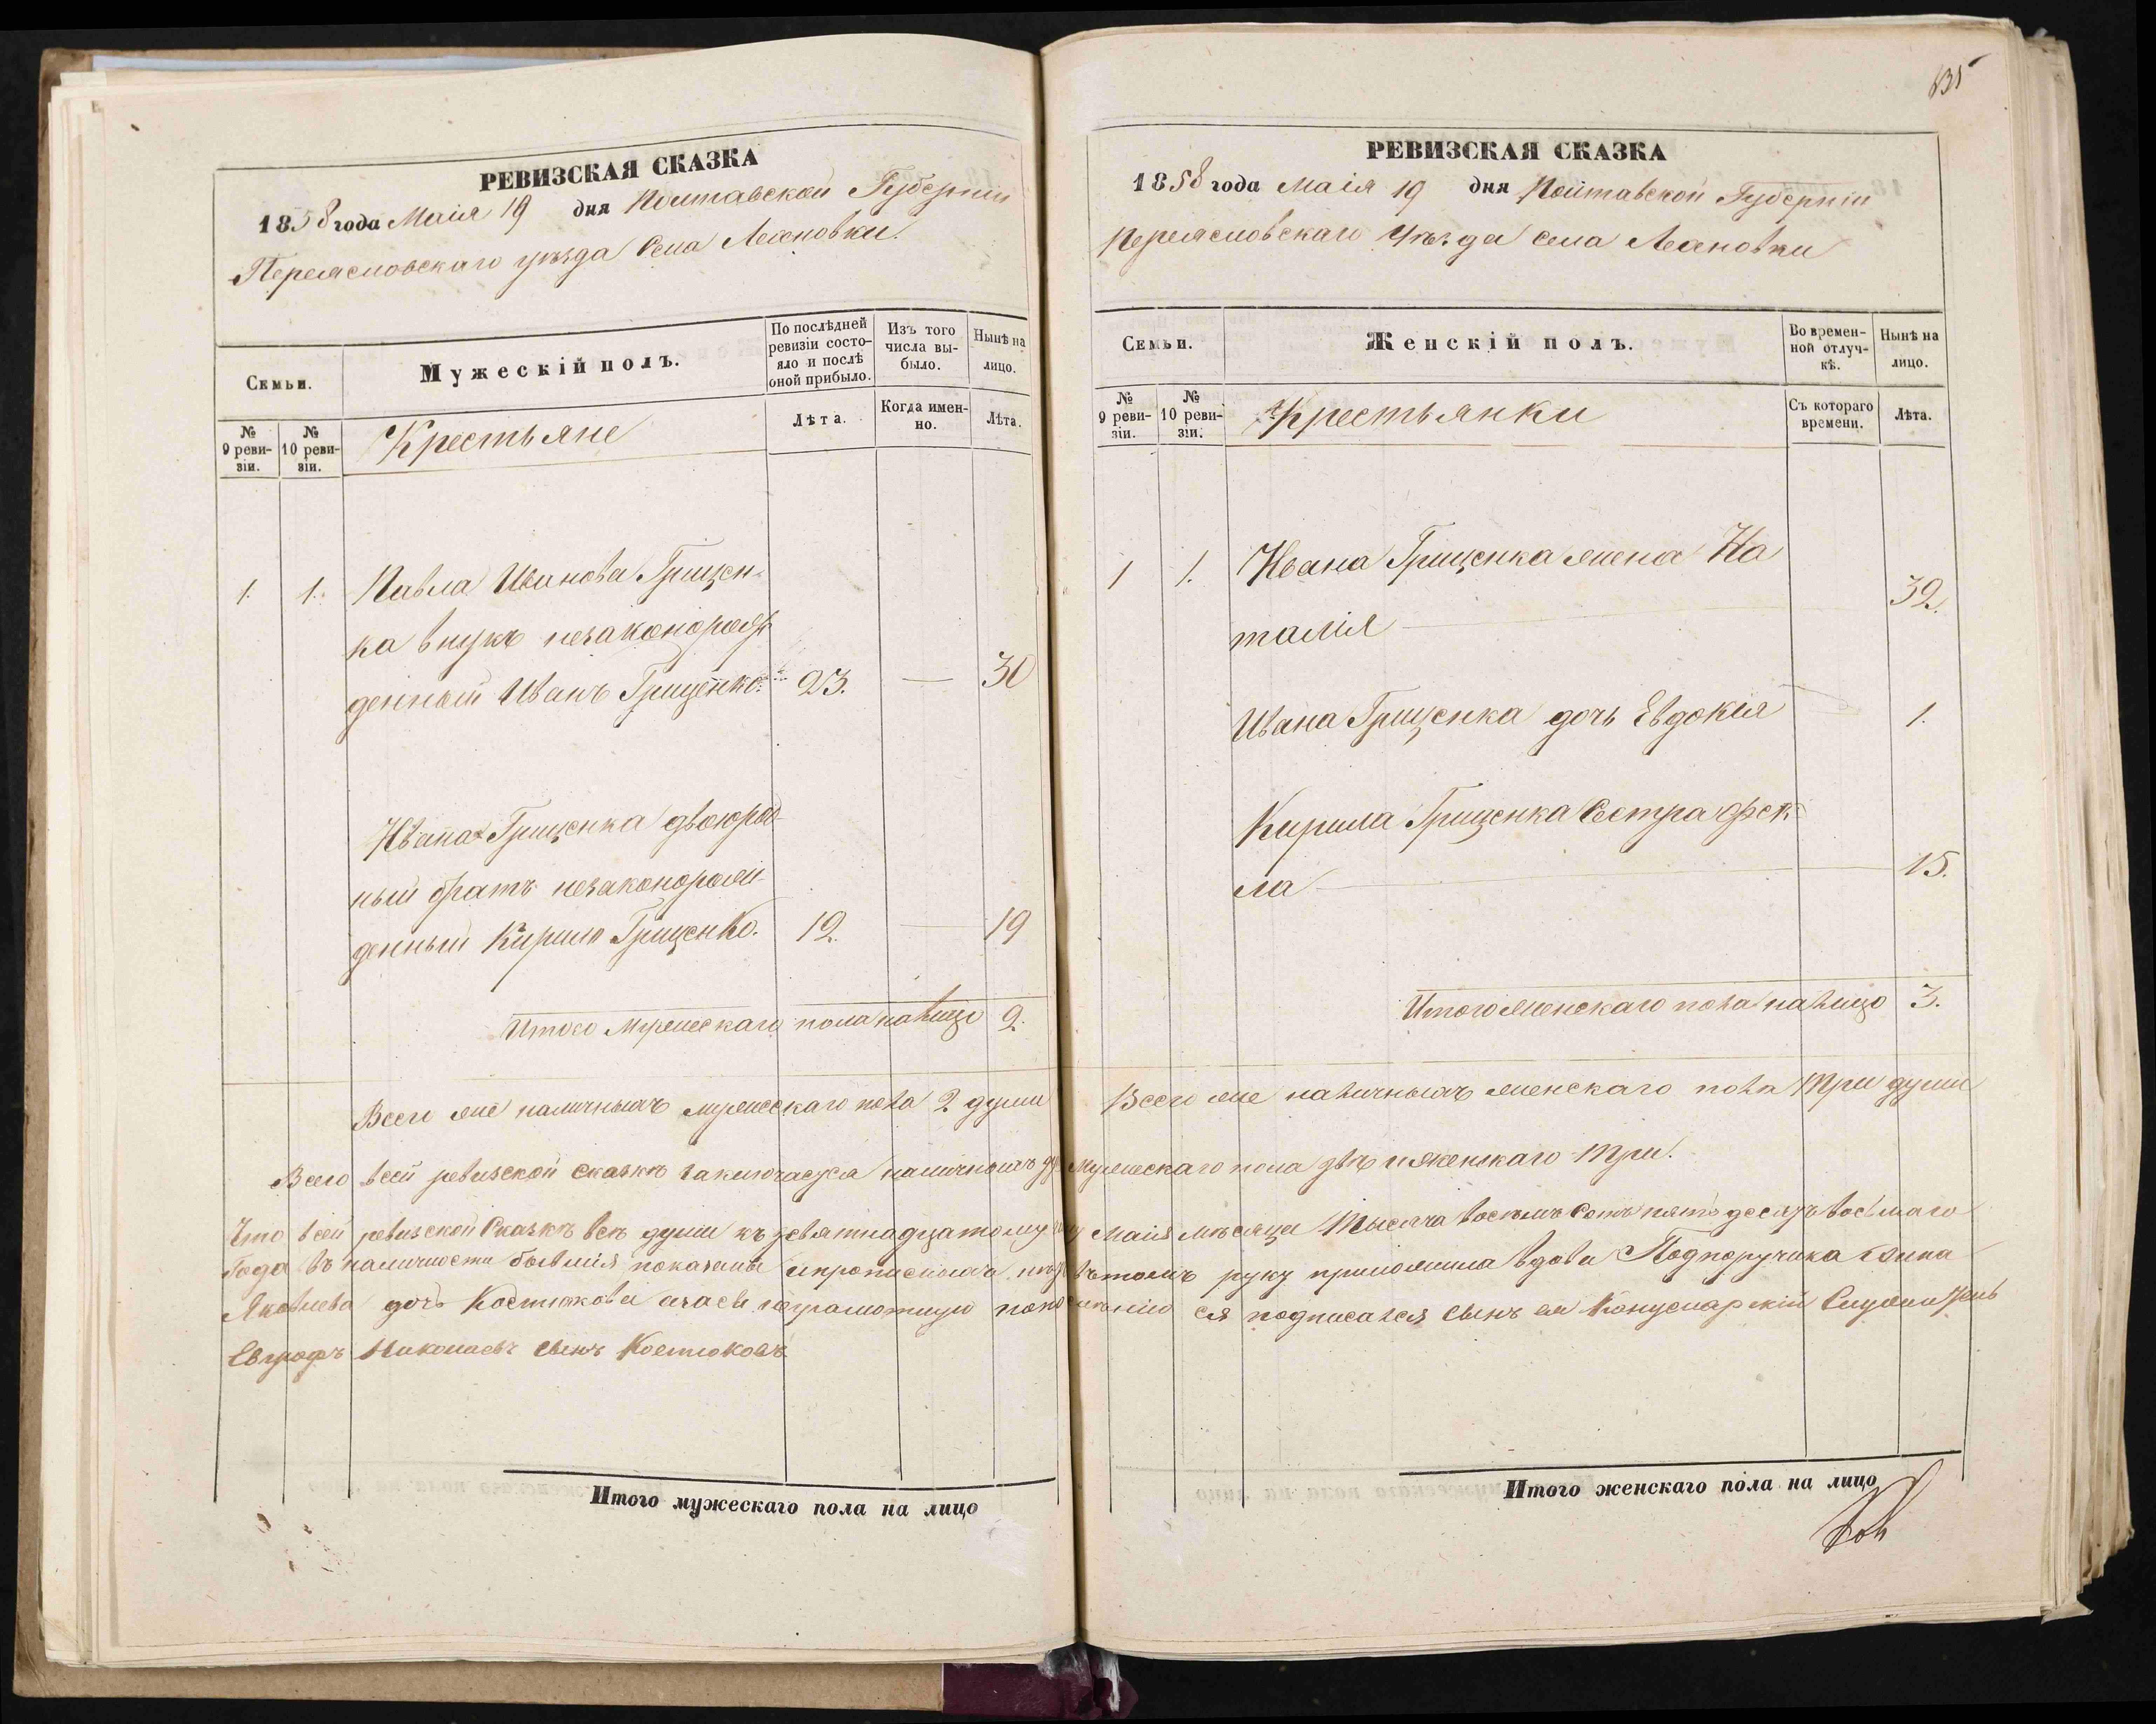 РЕВИЗСКАЯ СКАЗКА
1858 года Маія 19 дня Полтавской Губерніи
Переясловскаго уѣзда Села Лесковки.
Семьи.
Мужескій полъ.
По послѣдней ревизіи состояло и послѣ оной прибыло.
Изъ того числа выбыло.
Нынѣ на лицо.
№ 9 ревизіи.
№ 10 ревизіи.
Крестьяне
Лѣта.
Когда именно.
Лѣта.
1. 1. Павла Иванова Грищен-
ка внукъ незаконорож
денный Иванъ Грищенко. 23. — 30
Ивана Грищенка двоюрод
ный братъ незаконорож-
денный Кирило Грищенко. 12. — 19
Итого Мужескаго пола налицо 2.
Всего же наличныхъ мужескаго пола 2 души
РЕВИЗСКАЯ СКАЗКА
1858 года Маія 19 дня Полтавской Губерніи
Переясловскаго Уѣзда села
Семьи.
Женскій полъ.
Во временной отлучкѣ.
Нынѣ на лицо.
№ 9 ревизіи.
№ 10 ревизіи.
Крестьянки
Съ котораго времени.
Лѣта.
1 1. Ивана Грищенка жена На
талія — 32.
Ивана Грищенка дочь Евдокія — 1.
Кирила Грищенка Сестра Фек
ла — 15.
Итого женскаго пола налицо 3.
Всего же наличныхъ женскаго пола три души
Всего въ сей ревизской сказкѣ заключается наличныхъ ду Мужескаго пола двѣ и женскаго три.
Что в сей ревизской Сказкѣ всѣ души къ девятнадцатому Маія мѣсяца тысяча восемь сотъ пятьдесятъ восьмаго
Года въ наличности бывшія показаны и прописныхъ нѣтъ въ томъ руку приложила вдова Подпоручика
Яковлева дочь Костюкова а за св неграмотную по ея подписался сынъ ея Канцелярскій Служитель
Евграфъ Николаевъ сынъ Костюковъ
Итого мужескаго пола на лицо
Итого женскаго пола на лицо